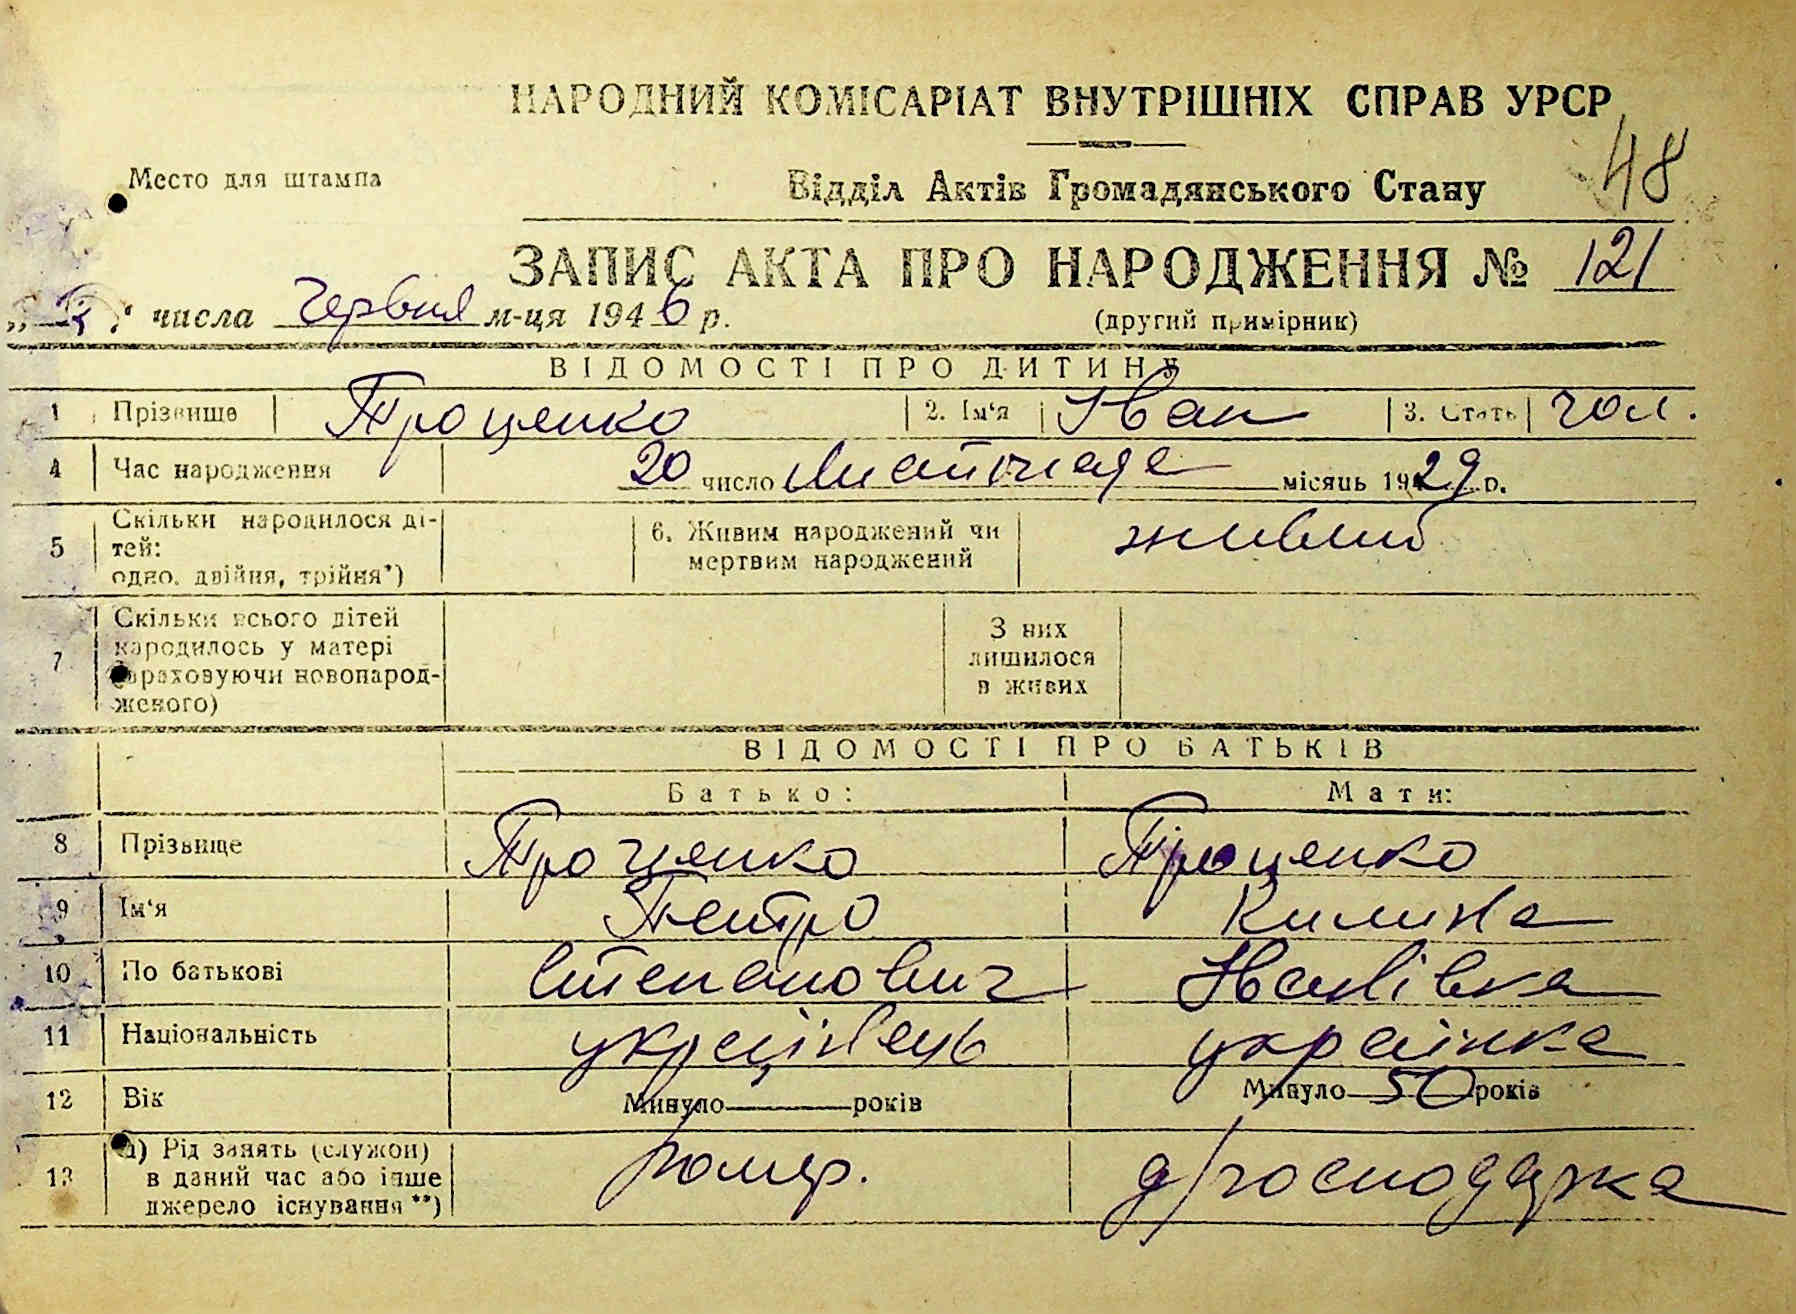 НАРОДНИЙ КОМІСАРІАТ ВНУТРІШНІХ СПРАВ УРСР
48
Место для штампа
Відділ Актів Громадянського Стану
ЗАПИС АКТА ПРО НАРОДЖЕННЯ № 121
числа червня м-ця 1946 р.
(другий примірник)
ВІДОМОСТІ ПРО ДИТИНУ
1 Прізвище Проценко 2. Ім'я Іван 3. Стать чол.
4 Час народження 20 число Листопада місяць 1929 р.
5 Скільки народилося ді-
тей:
одно, двійня, трійня*)
6. Живим народжений чи
мертвим народжений
живий
7 Скільки всього дітей
народилось у матері
(враховуючи новонарод-
женого)
З них
лишилося
в живих
ВІДОМОСТІ ПРО БАТЬКІВ
Батько: Мати:
8 Прізвище Проценко Проценко
9 Ім'я Петро Килина
10 По батькові Степанович Іванівна
11 Національність українець українка
12 Вік Минуло років Минуло 50 років
13 а) Рід занять (служби)
в даний час або інше
джерело існування**)
помер. д/господарка